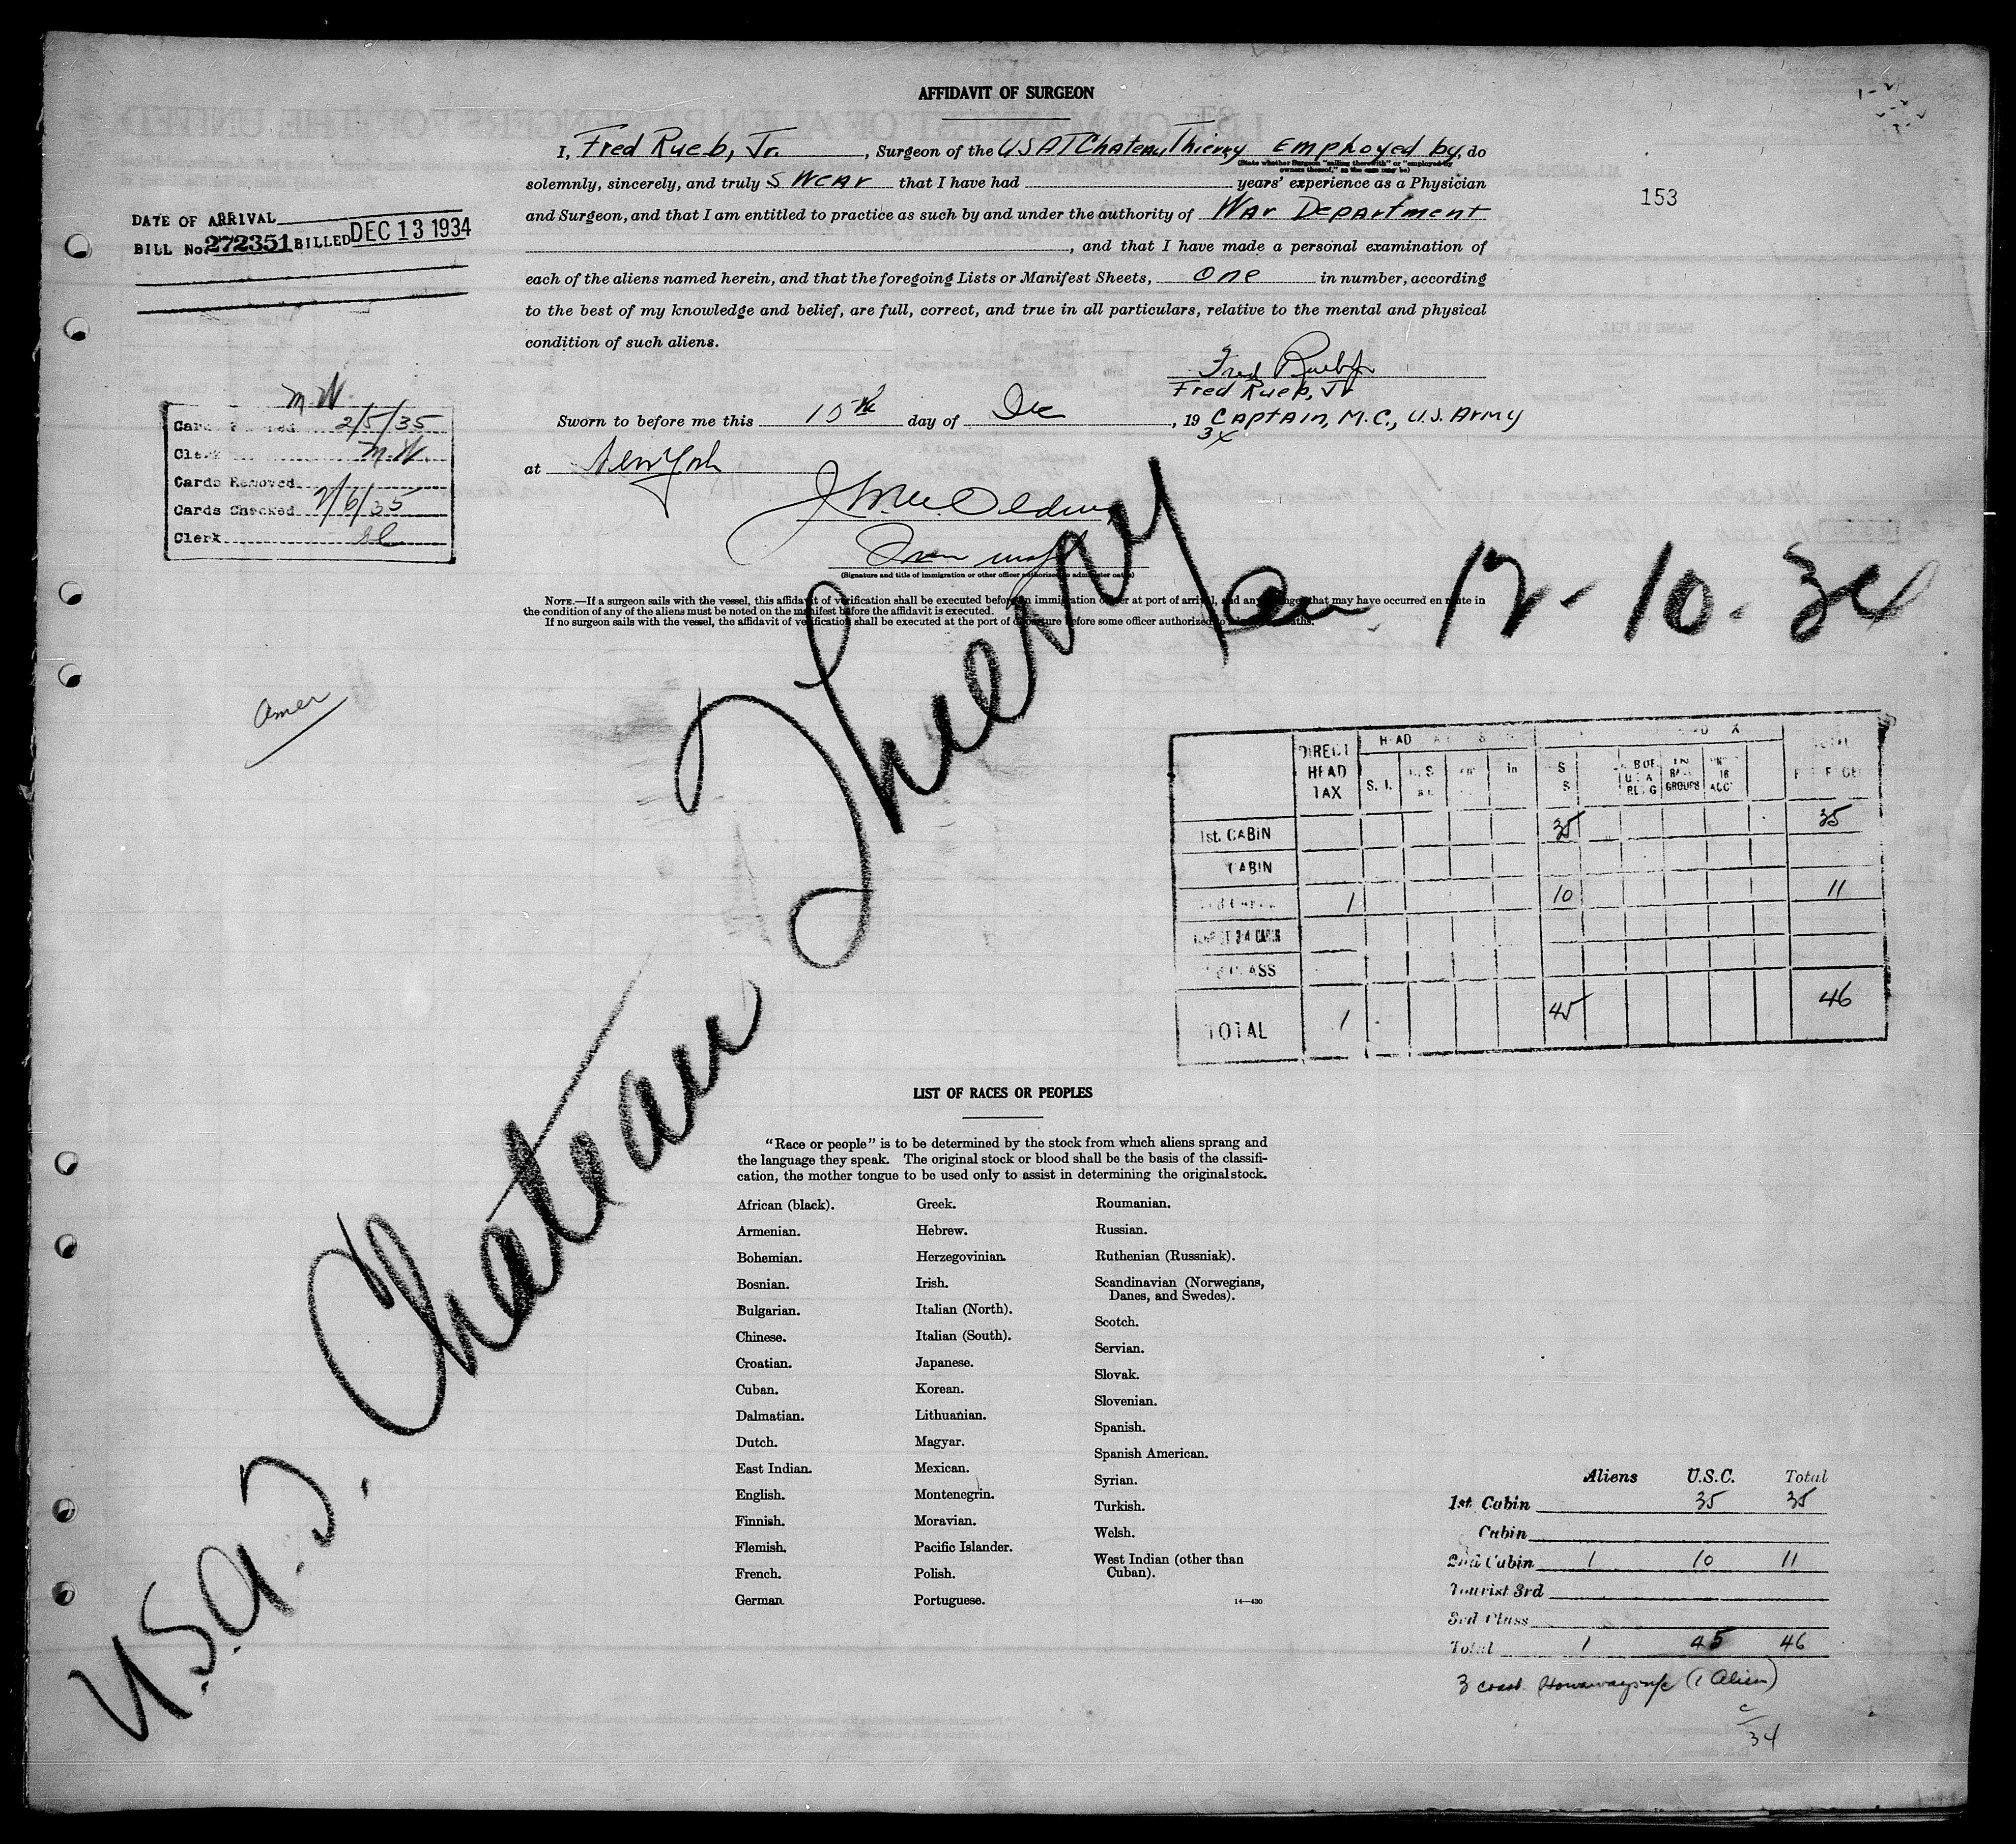 AFFIDAVIT OF SURGEON
I, Fred Rueb, Jr. , Surgeon of the USAT Chateau Thierry Employed by, do
(State whether Surgeon "sailing therewith" or "employed by owners thereof," as the case may be)
solemnly, sincerely, and truly swear that I have had years' experience as a Physician
and Surgeon, and that I am entitled to practice as such by and under the authority of War Department
, and that I have made a personal examination of
each of the aliens named herein, and that the foregoing Lists or Manifest Sheets, one in number, according
to the best of my knowledge and belief, are full, correct, and true in all particulars, relative to the mental and physical
condition of such aliens.
153
DATE OF ARRIVAL
BILL No. 272351 BILLED DEC 13 1934
Fred Rueb Jr
Fred Rueb, Jr
Sworn to before me this 10th day of Dec , 19 34
Captain, M.C., U.S. Army
at New York
(Signature and title of immigration or other officer authorized to administer oaths)
M.W.
2/5/35
Clerk M.W.
Cards Removed
Cards Checked 2/6/35
Clerk
NOTE.—If a surgeon sails with the vessel, this affidavit of verification shall be executed before an immigration officer at port of arrival, and any changes that may have occurred en route in
the condition of any of the aliens must be noted on the manifest before the affidavit is executed.
If no surgeon sails with the vessel, the affidavit of verification shall be executed at the port of departure before some officer authorized to administer oaths.
U.S.A.T. Chateau Thierry
12-10-34
Amer
DIRECT HEAD TAX
HEAD
S. I.
GROUPS
1st. CABIN 35 35
CABIN
1 10 11
TOTAL 1 45 46
LIST OF RACES OR PEOPLES
"Race or people" is to be determined by the stock from which aliens sprang and
the language they speak. The original stock or blood shall be the basis of the classifi-
cation, the mother tongue to be used only to assist in determining the original stock.
African (black).
Armenian.
Bohemian.
Bosnian.
Bulgarian.
Chinese.
Croatian.
Cuban.
Dalmatian.
Dutch.
East Indian.
English.
Finnish.
Flemish.
French.
German
Greek.
Hebrew.
Herzegovinian.
Irish.
Italian (North).
Italian (South).
Japanese.
Korean.
Lithuanian.
Magyar.
Mexican.
Montenegrin.
Moravian.
Pacific Islander.
Polish.
Portuguese.
Roumanian.
Russian.
Ruthenian (Russniak).
Scandinavian (Norwegians,
Danes, and Swedes).
Scotch.
Servian.
Slovak.
Slovenian.
Spanish.
Spanish American.
Syrian.
Turkish.
Welsh.
West Indian (other than
Cuban).
14—430
Aliens U.S.C. Total
1st Cabin 35 35
Cabin
2nd Cabin 1 10 11
Tourist 3rd
3rd Class
Total 1 45 46
3 coast (1 Alien)
34